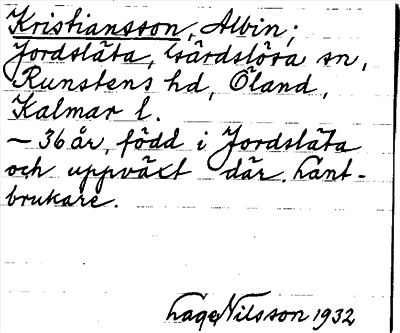 Kristiansson, Albin;
Jordsläta, Gärdslösa sn,
Runstens hd, Öland,
Kalmar l.
— 36 år, född i Jordsläta
och uppväxt där. Lant-
brukare.
Lage Nilsson 1932